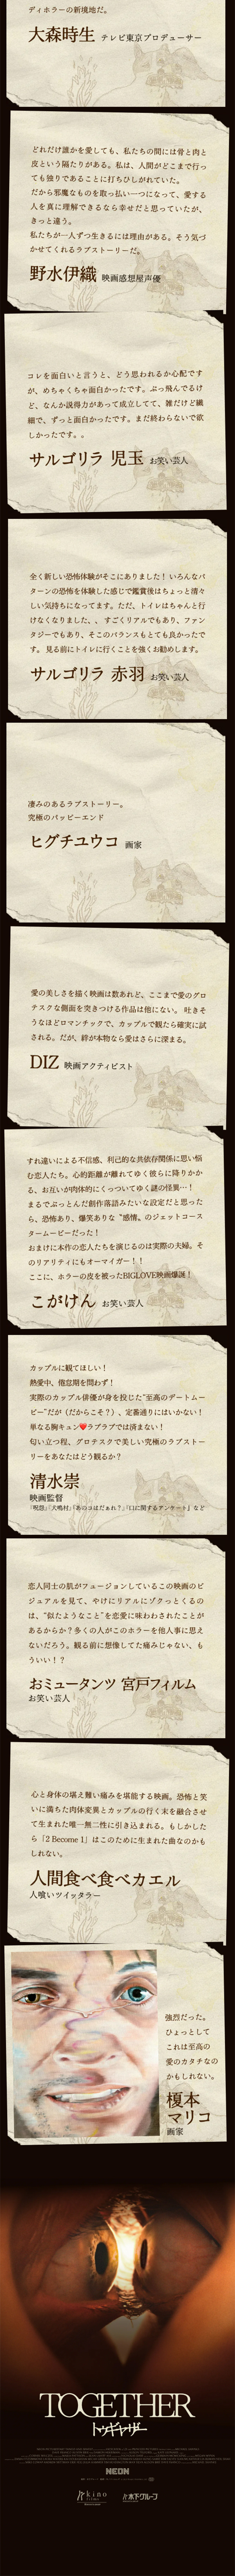 ディホラーの新境地だ。
大森時生 テレビ東京プロデューサー
どれだけ誰かを愛しても、私たちの間には骨と肉と
皮という隔たりがある。私は、人間がどこまで行っ
ても独りであることに打ちひしがれていた。
だから邪魔なものを取っ払い一つになって、愛する
人を真に理解できるなら幸せだと思っていたが、
きっと違う。
私たちが一人ずつ生きるには理由がある。そう気づ
かせてくれるラブストーリーだ。
野水伊織 映画感想屋声優
コレを面白いと言うと、どう思われるか心配です
が、めちゃくちゃ面白かったです。ぶっ飛んでるけ
ど、なんか説得力があって成立してて、雑だけど繊
細で、ずっと面白かったです。まだ終わらないで欲
しかったです。。
サルゴリラ 児玉 お笑い芸人
全く新しい恐怖体験がそこにありました！ いろんなパ
ターンの恐怖を体験した感じで鑑賞後はちょっと清々
しい気持ちになってます。ただ、トイレはちゃんと行
けなくなりました、、 すごくリアルでもあり、ファン
タジーでもあり、そこのバランスもとても良かったで
す。 見る前にトイレに行くことを強くお勧めします。
サルゴリラ 赤羽 お笑い芸人
凄みのあるラブストーリー。
究極のハッピーエンド
ヒグチユウコ 画家
愛の美しさを描く映画は数あれど、ここまで愛のグロ
テスクな側面を突きつける作品は他にない。 吐きそ
うなほどロマンチックで、カップルで観たら確実に試
される。だが、絆が本物なら愛はさらに深まる。
DIZ 映画アクティビスト
すれ違いによる不信感、利己的な共依存関係に思い悩
む恋人たち。心的距離が離れてゆく彼らに降りかか
る、お互いが肉体的にくっついてゆく謎の怪異…！
まるでぶっとんだ創作落語みたいな設定だと思った
ら、恐怖あり、爆笑ありな“感情„のジェットコース
タームービーだった！
おまけに本作の恋人たちを演じるのは実際の夫婦。そ
のリアリティにもオーマイガー！！
ここに、ホラーの皮を被ったBIGLOVE映画爆誕！
こがけん お笑い芸人
カップルに観てほしい！
熱愛中、倦怠期を問わず！
実際のカップル俳優が身を投じた“至高のデートムー
ビー”だが（だからこそ？）、定番通りにはいかない！
単なる胸キュン❤️ラブラブでは済まない！
匂い立つ程、グロテスクで美しい究極のラブストー
リーをあなたはどう観るか？
清水崇
映画監督
『呪怨』『犬鳴村』『あのコはだぁれ？』『口に関するアンケート』など
恋人同士の肌がフュージョンしているこの映画のビ
ジュアルを見て、やけにリアルにゾクっとくるの
は、“似たようなこと”を恋愛に味わわされたことが
あるからか？多くの人がこのホラーを他人事に思え
ないだろう。観る前に想像してた痛みじゃない、も
ういい！？
おミュータンツ 宮戸フィルム
お笑い芸人
心と身体の堪え難い痛みを堪能する映画。恐怖と笑
いに満ちた肉体変異とカップルの行く末を融合させ
て生まれた唯一無二性に引き込まれる。もしかした
ら「2 Become 1」はこのために生まれた曲なのかも
しれない。
人間食べ食べカエル
人喰いツイッタラー
強烈だった。
ひょっとして
これは至高の
愛のカタチなの
かもしれない。
榎本
マリコ
画家
TOGETHER
トゥギャザー
NEON
kino
films
木下グループ